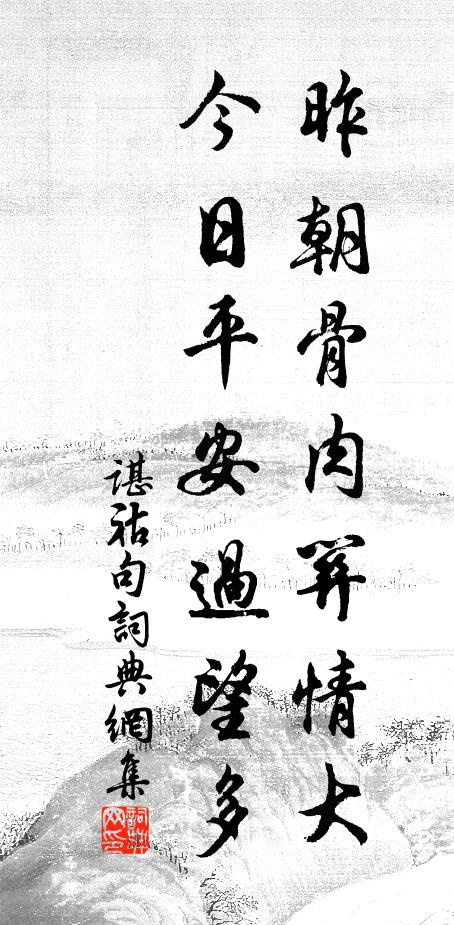 昨朝骨肉關情大
今日平安過望多
諶祜句詞典網集